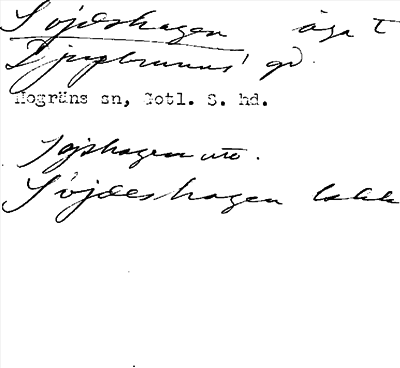 Söjdeshagen äga t
Djupbrunns' gd.
Hogräns sn, Gotl. S. hd.
Söjshagen utt.
Söjdeshagen